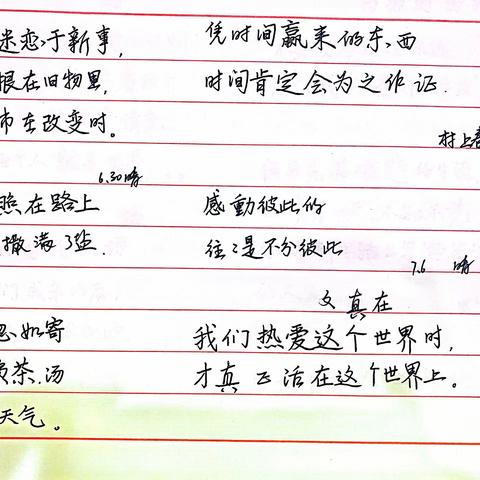 迷恋于新事,
根在旧物里,
市在改变时。
6.30晴
照在路上
撒满了盐.
忽如寄
茶.汤
天气。
凭时间赢来的东西
时间肯定会为之作证.
村上春
感動彼此的
往往是不分彼此
7.6 晴
文 真在
我们热爱这个世界时,
才真正活在这个世界上。